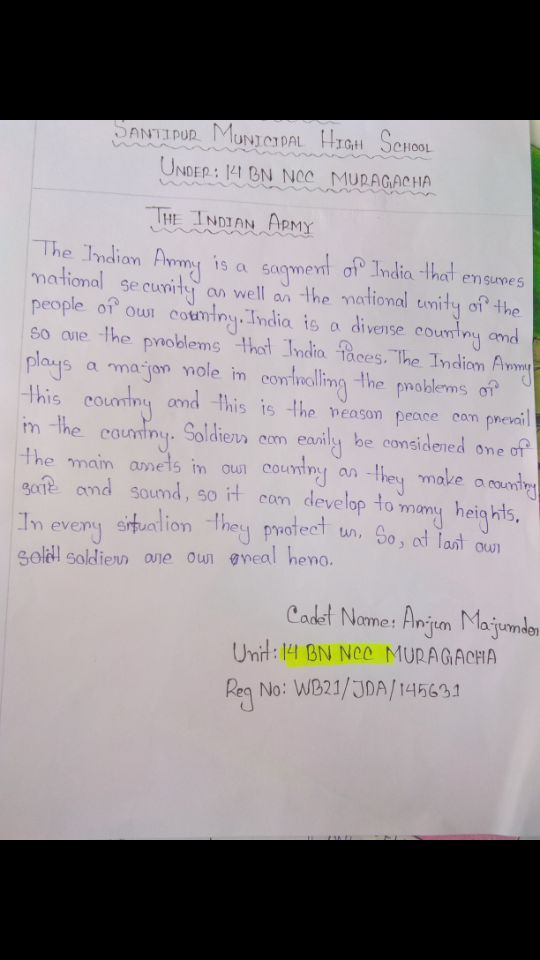 SANTIPUR MUNICIPAL HIGH SCHOOL
UNDER: 14 BN NCC MURAGACHA
THE INDIAN ARMY
The Indian Army is a sagment of India that ensures
national security as well as the national unity of the
people of our country. India is a diverse country and
so are the problems that India faces. The Indian Army
plays a major role in controlling the problems of
this country and this is the reason peace can prevail
in the country. Soldiers can easily be considered one of
the main assets in our country as they make a country
safe and sound, so it can develop to many heights.
In every situation they protect us. So, at last our
soldiers are our real hero.
Cadet Name: Arjun Majumder
Unit: 14 BN NCC MURAGACHA
Reg No: WB21/JDA/145631